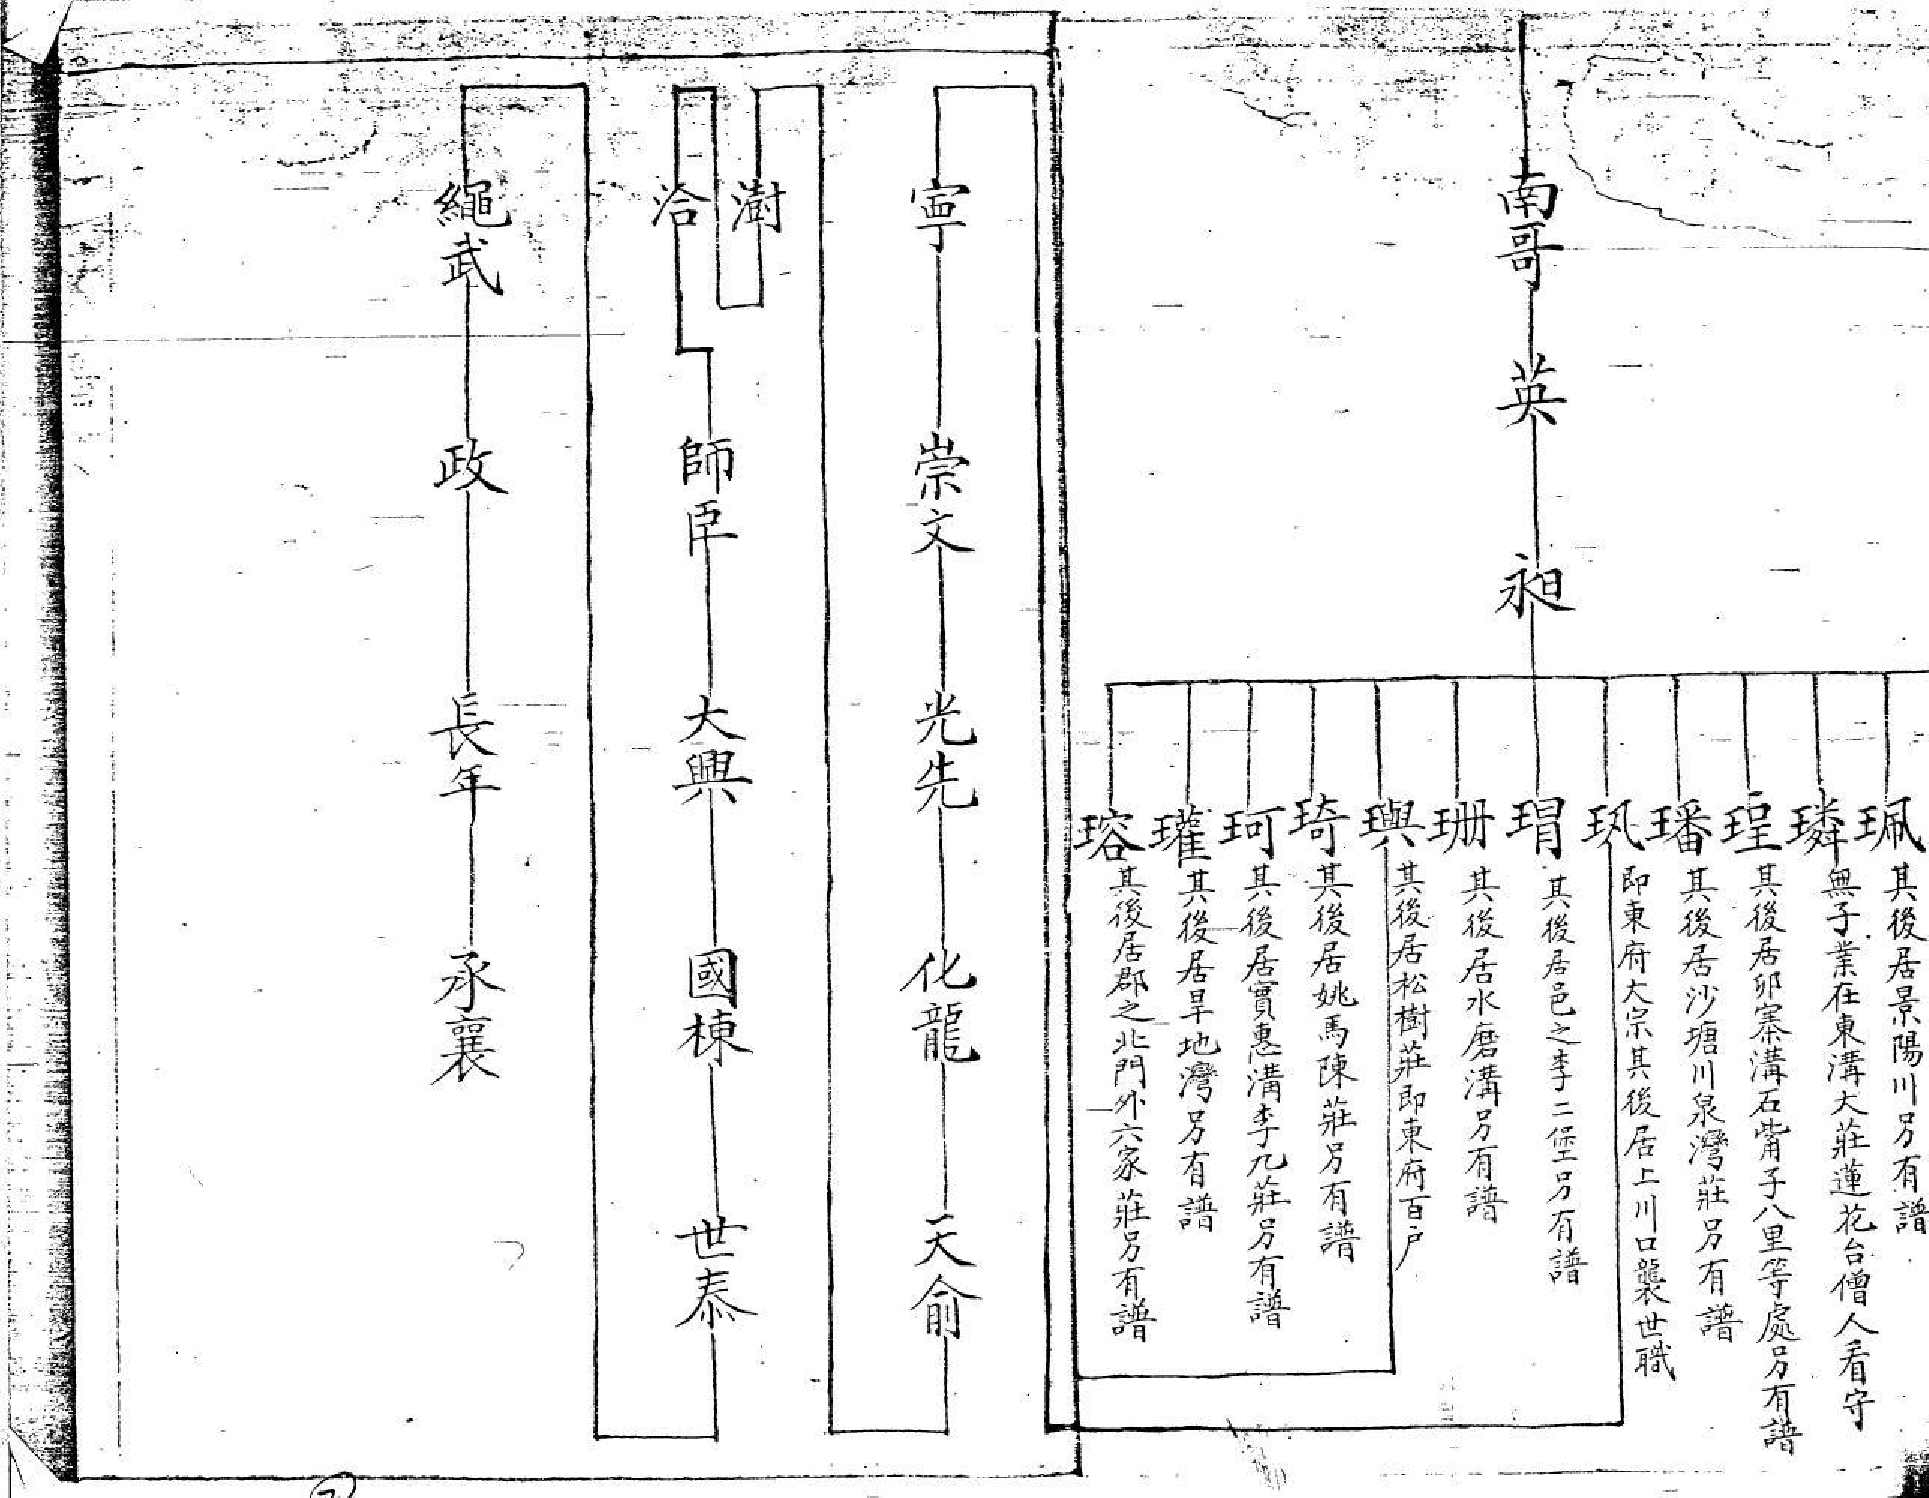 南哥
英
昶
珮 其後居景陽川另有譜
璘 無子業在東溝大莊蓮花台僧人看守
珵 其後居卯寨溝石嘴子八里等處另有譜
璠 其後居沙塘川泉灣莊另有譜
玑 即東府大宗其後居上川口襲世職
瑁 其後居邑之李二堡另有譜
珊 其後居水磨溝另有譜
璵 其後居松樹莊即東府百户
琦 其後居姚馬陳莊另有譜
珂 其後居實惠溝李九莊另有譜
瓘 其後居旱地灣另有譜
瑢 其後居郡之北門外六家莊另有譜
寧
崇文
光先
化龍
天俞
澍
洽
師臣
大興
國棟
世泰
繩武
政
長年
承襄